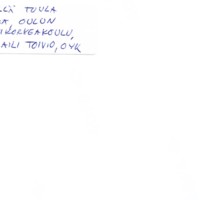 LÄ TUULA
A, OULUN
IKORKEAKOULU,
AILI TOIVIO, OYK